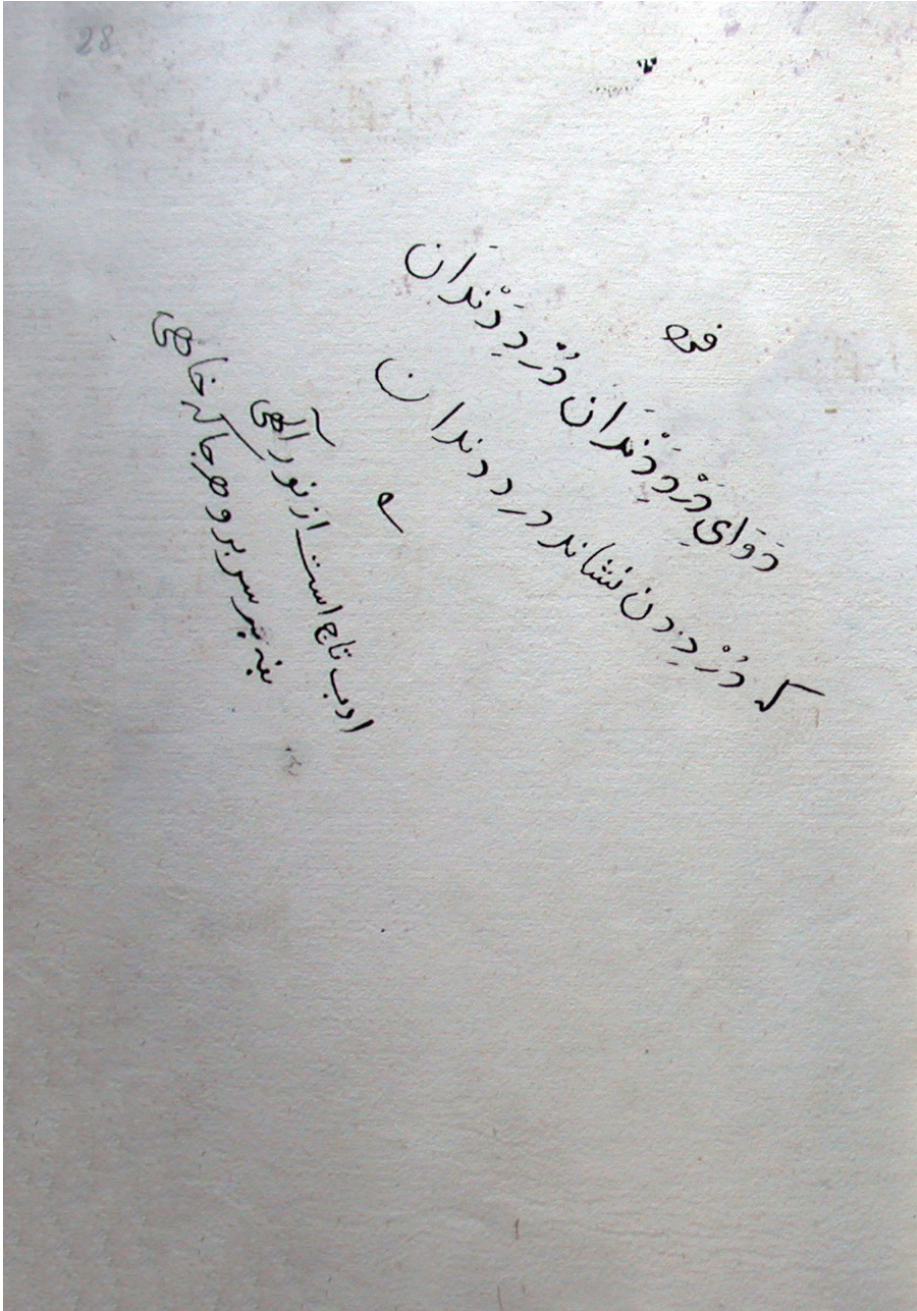 28
دَوَايِ دَرْدِ دَنْدَان دُرْدِ دَنْدَان
که دُرْدِ دن نشاند درد دندان
ادب تاج است از نور آلهی
بنه بر سر برو هر جا که خاهی